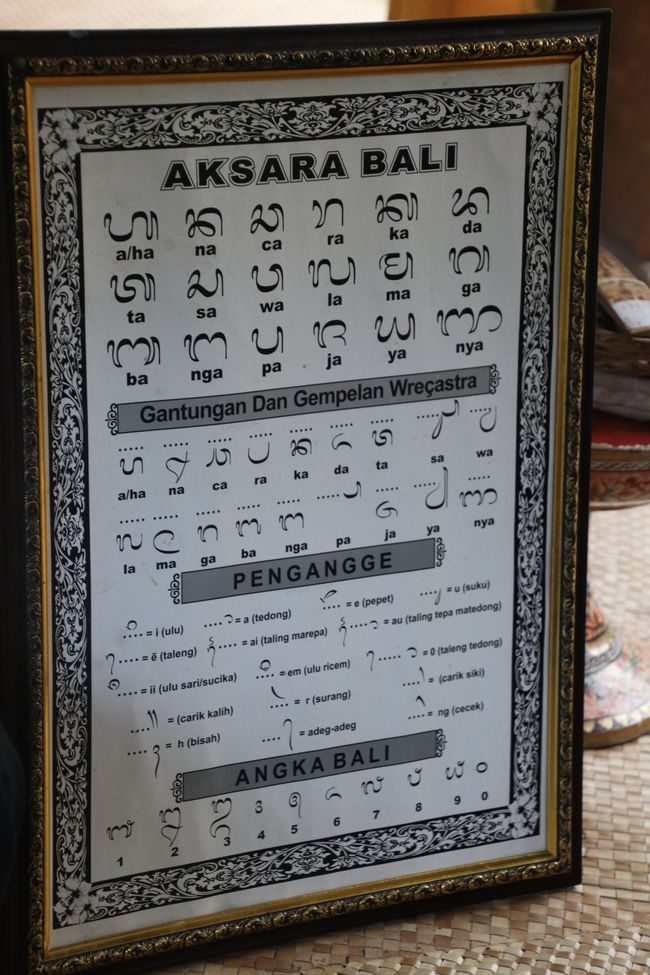 AKSARA BALI
ᬳ ᬦ ᬘ ᬭ ᬓ ᬤ
a/ha na ca ra ka da
ᬢ ᬲ ᬯ ᬮ ᬫ ᬕ
ta sa wa la ma ga
ᬩ ᬗ ᬧ ᬚ ᬬ ᬜ
ba nga pa ja ya nya
Gantungan Dan Gempelan Wreçastra
..... ..... ..... ..... ..... ..... ..... ..... .....
᭄ᬳ ᭄ᬦ ᭄ᬘ ᭄ᬭ ᭄ᬓ ᭄ᬤ ᭄ᬢ ᭄ᬲ ᭄ᬯ
a/ha na ca ra ka da ta sa wa
..... ..... ..... ..... ..... ..... ..... ..... .....
᭄ᬮ ᭄ᬫ ᭄ᬕ ᭄ᬩ ᭄ᬗ ᭄ᬧ ᭄ᬚ ᭄ᬬ ᭄ᬜ
la ma ga ba nga pa ja ya nya
PENGANGGE
....ᬶ = i (ulu) ....ᬵ = a (tedong) ....ᭂ = e (pepet) ....ᬸ = u (suku)
ᬾ.... = ē (taleng) ᬿ.... = ai (taling marepa) ᭁ.... = au (taling tepa matedong)
....ᬷ = ii (ulu sari/sucika) ....ᬁ = em (ulu ricem) ᭀ.... = 0 (taleng tedong)
....᭟ = (carik kalih) ....ᬃ = r (surang) ....᭞ = (carik siki)
....ᬄ = h (bisah) ....᭄ = adeg-adeg ....ᬂ = ng (cecek)
ANGKA BALI
᭑ ᭒ ᭓ ᭔ ᭕ ᭖ ᭗ ᭘ ᭙ ᭐
1 2 3 4 5 6 7 8 9 0